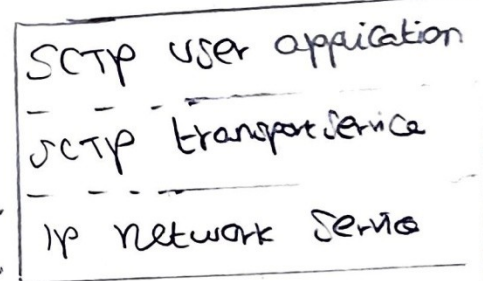 SCTP user appication
SCTP transport service
IP network service